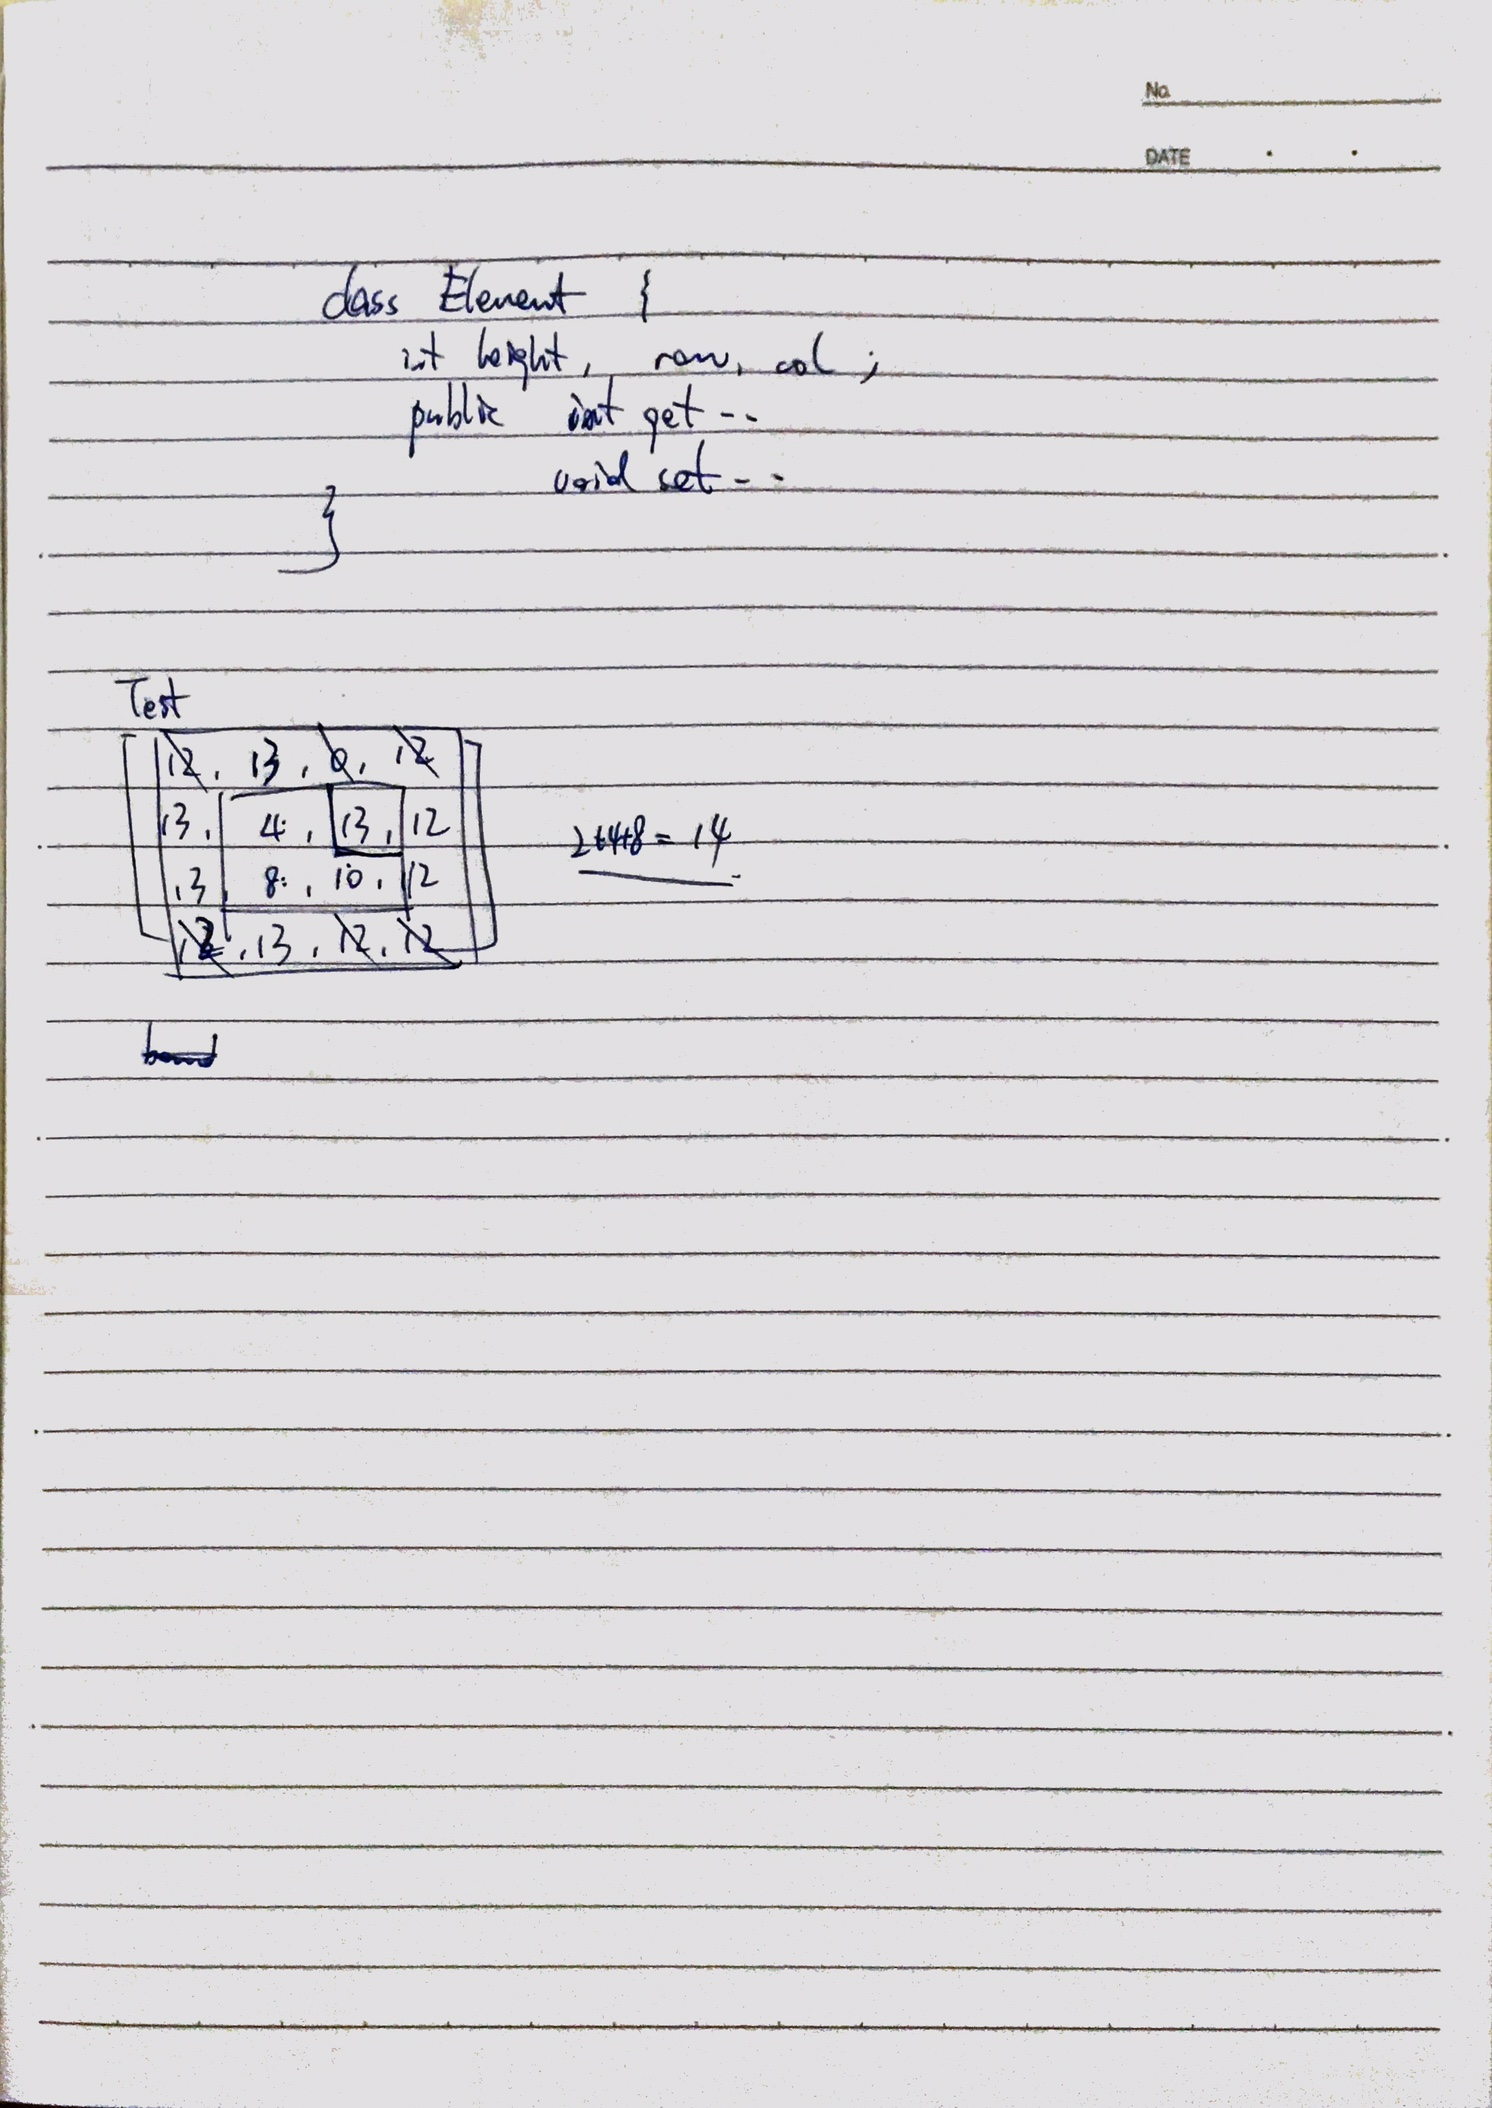 No.
DATE
class Element {
int height, row, col ;
public int get --
void set --
}
Test
12, 13, 0, 12
13, 4, 13, 12
13, 8, 10, 12
12, 13, 12, 12
2+4+8 = 14